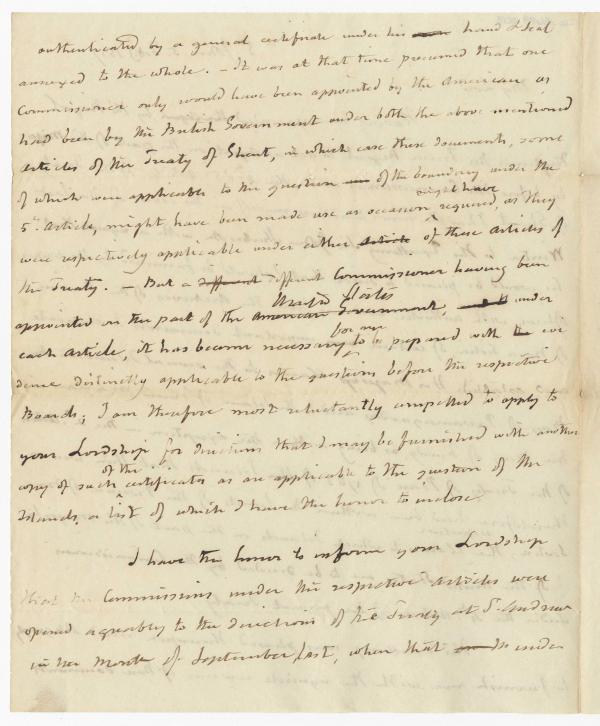 authenticated by a general certificate under his hand & seal
annexed to the whole. – It was at that time presumed that one
Commissioner only would have been appointed by the American as
had been by the British Government under both the above mentioned
articles of the Treaty of Ghent, in which case these documents, some
of which were applicable to the question of the boundary under the
might have
5th. Article, might have been made use as occasion required, as they
were respectively applicable under either article of these articles of
the Treaty. – But a different different Commissioner having been
United States
appointed on the part of the American Government, under
for me
each article, it has become necessary to be prepared with evi
dence distinctly applicable to the questions before the respective
Boards; I am therefore most reluctantly compelled to apply to
your Lordship for directions that I may be furnished with another
of the
copy of such certificates as are applicable to the question of the
Islands, a list of which I have the honor to inclose.
I have the honor to inform your Lordship
that the Commissions under the respective articles were
opened agreeably to the directions of the Treaty at St. Andrews
in the Month of September last, when that under